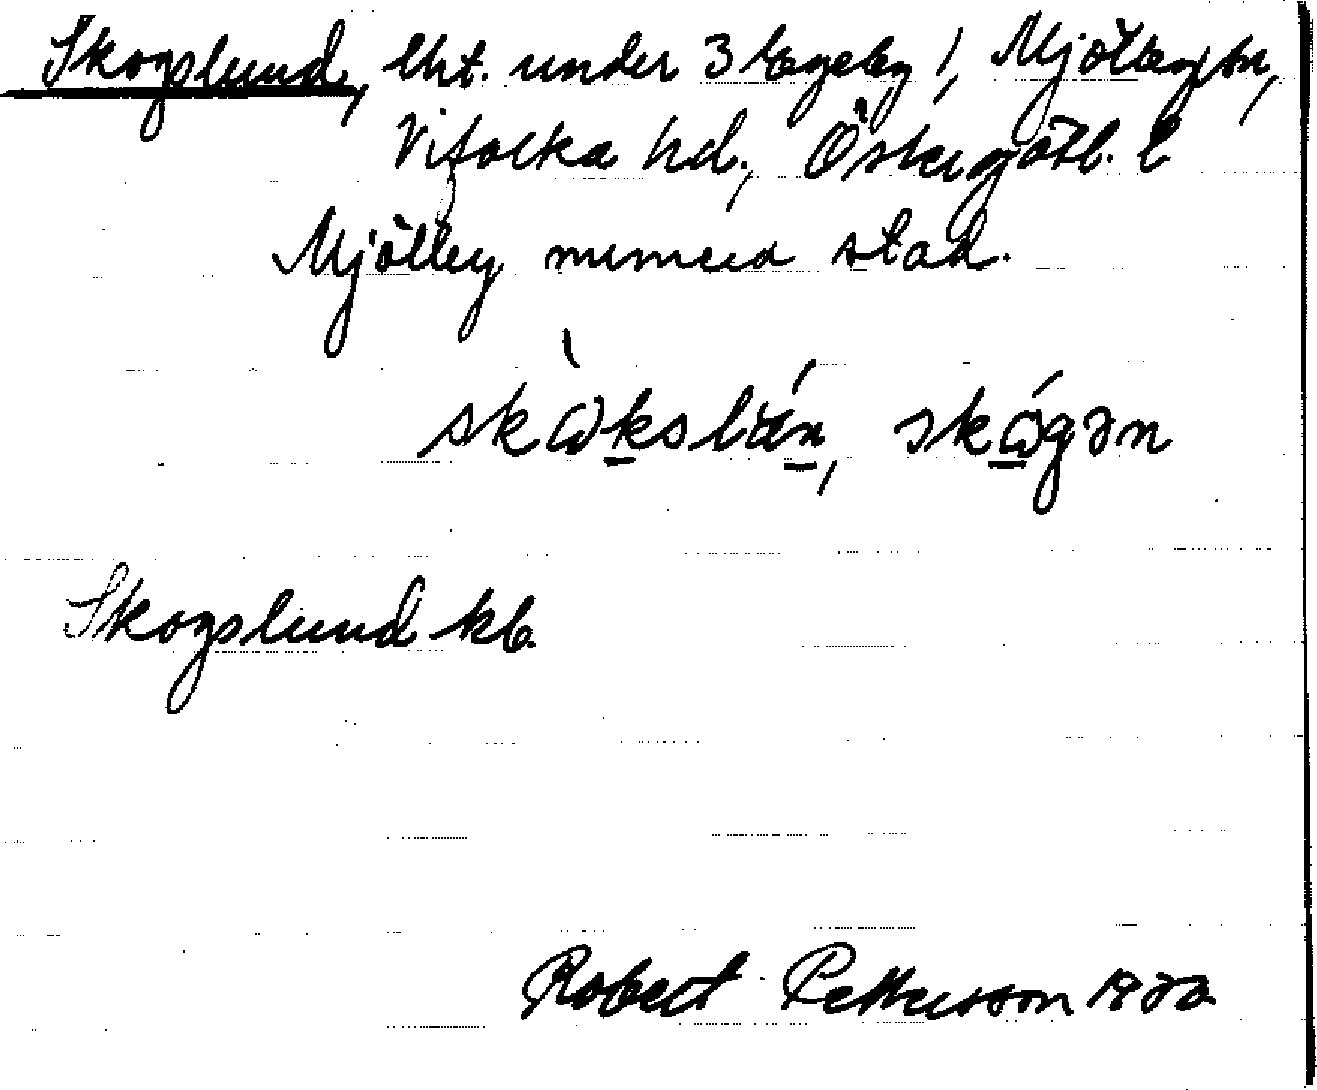 Skogslund, lht. under 3 Egeby /, Mjölby sn,
Vifolka hd., Östergötl. l
Mjölby numera stad.
skωkslun, skωgən
Skogslund kb.
Robert Pettersson